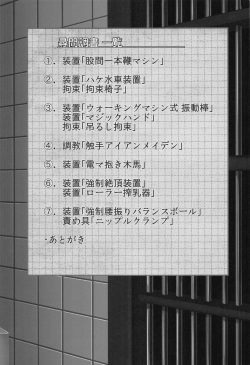 尋問調書一覧
①．装置「股間一本鞭マシン」
②．装置「ハケ水車装置」
拘束「拘束椅子」
③．装置「ウォーキングマシン式 振動棒」
装置「マジックハンド」
拘束「吊るし拘束」
④．調教「触手アイアンメイデン」
⑤．装置「電マ抱き木馬」
⑥．装置「強制絶頂装置」
装置「ローラー搾乳器」
⑦．装置「強制腰振りバランスボール」
責め具「ニップルクランプ」
・あとがき